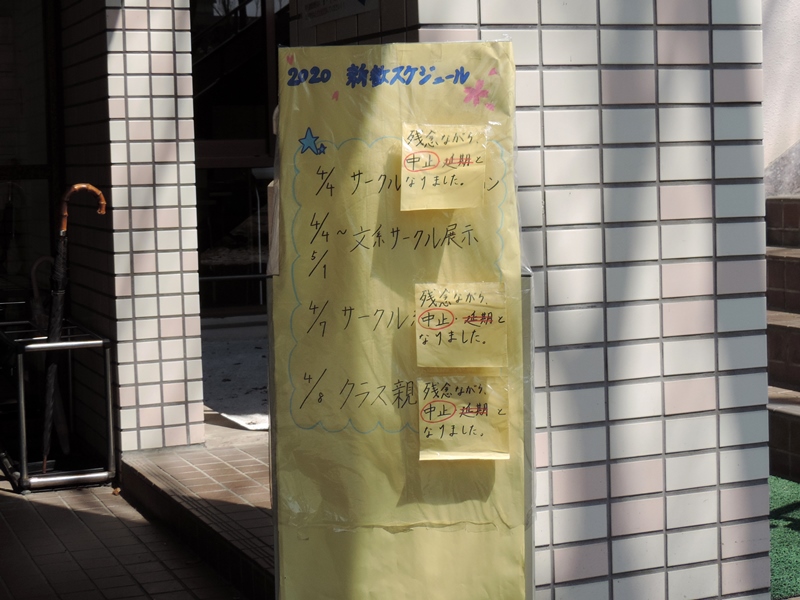 2020 新歓スケジュール
残念ながら、
中止・延期と
なりました。
4/4 サークル ン
4/4～ 文系サークル展示
5/1
4/7 サークル
残念ながら、
中止・延期と
なりました。
4/8 クラス親
残念ながら、
中止・延期と
なりました。